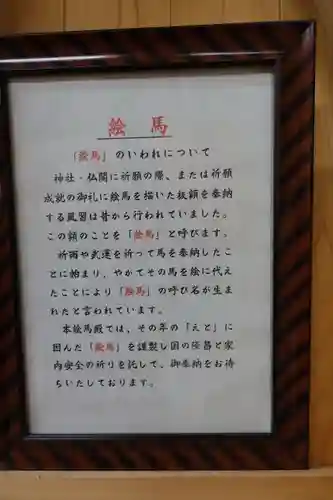 絵馬
「絵馬」のいわれについて
神社・仏閣に祈願の際、または祈願
成就の御礼に絵馬を描いた板額を奉納
する風習は昔から行われていました。
この額のことを「絵馬」と呼びます。
祈雨や武運を祈って馬を奉納したこ
とに始まり、やがてその馬を絵に代え
たことにより「絵馬」の呼び名が生ま
れたと言われています。
本絵馬殿では、その年の「えと」に
因んだ「絵馬」を謹製し国の隆昌と家
内安全の祈りを託して、御奉納をお待
ちいたしております。